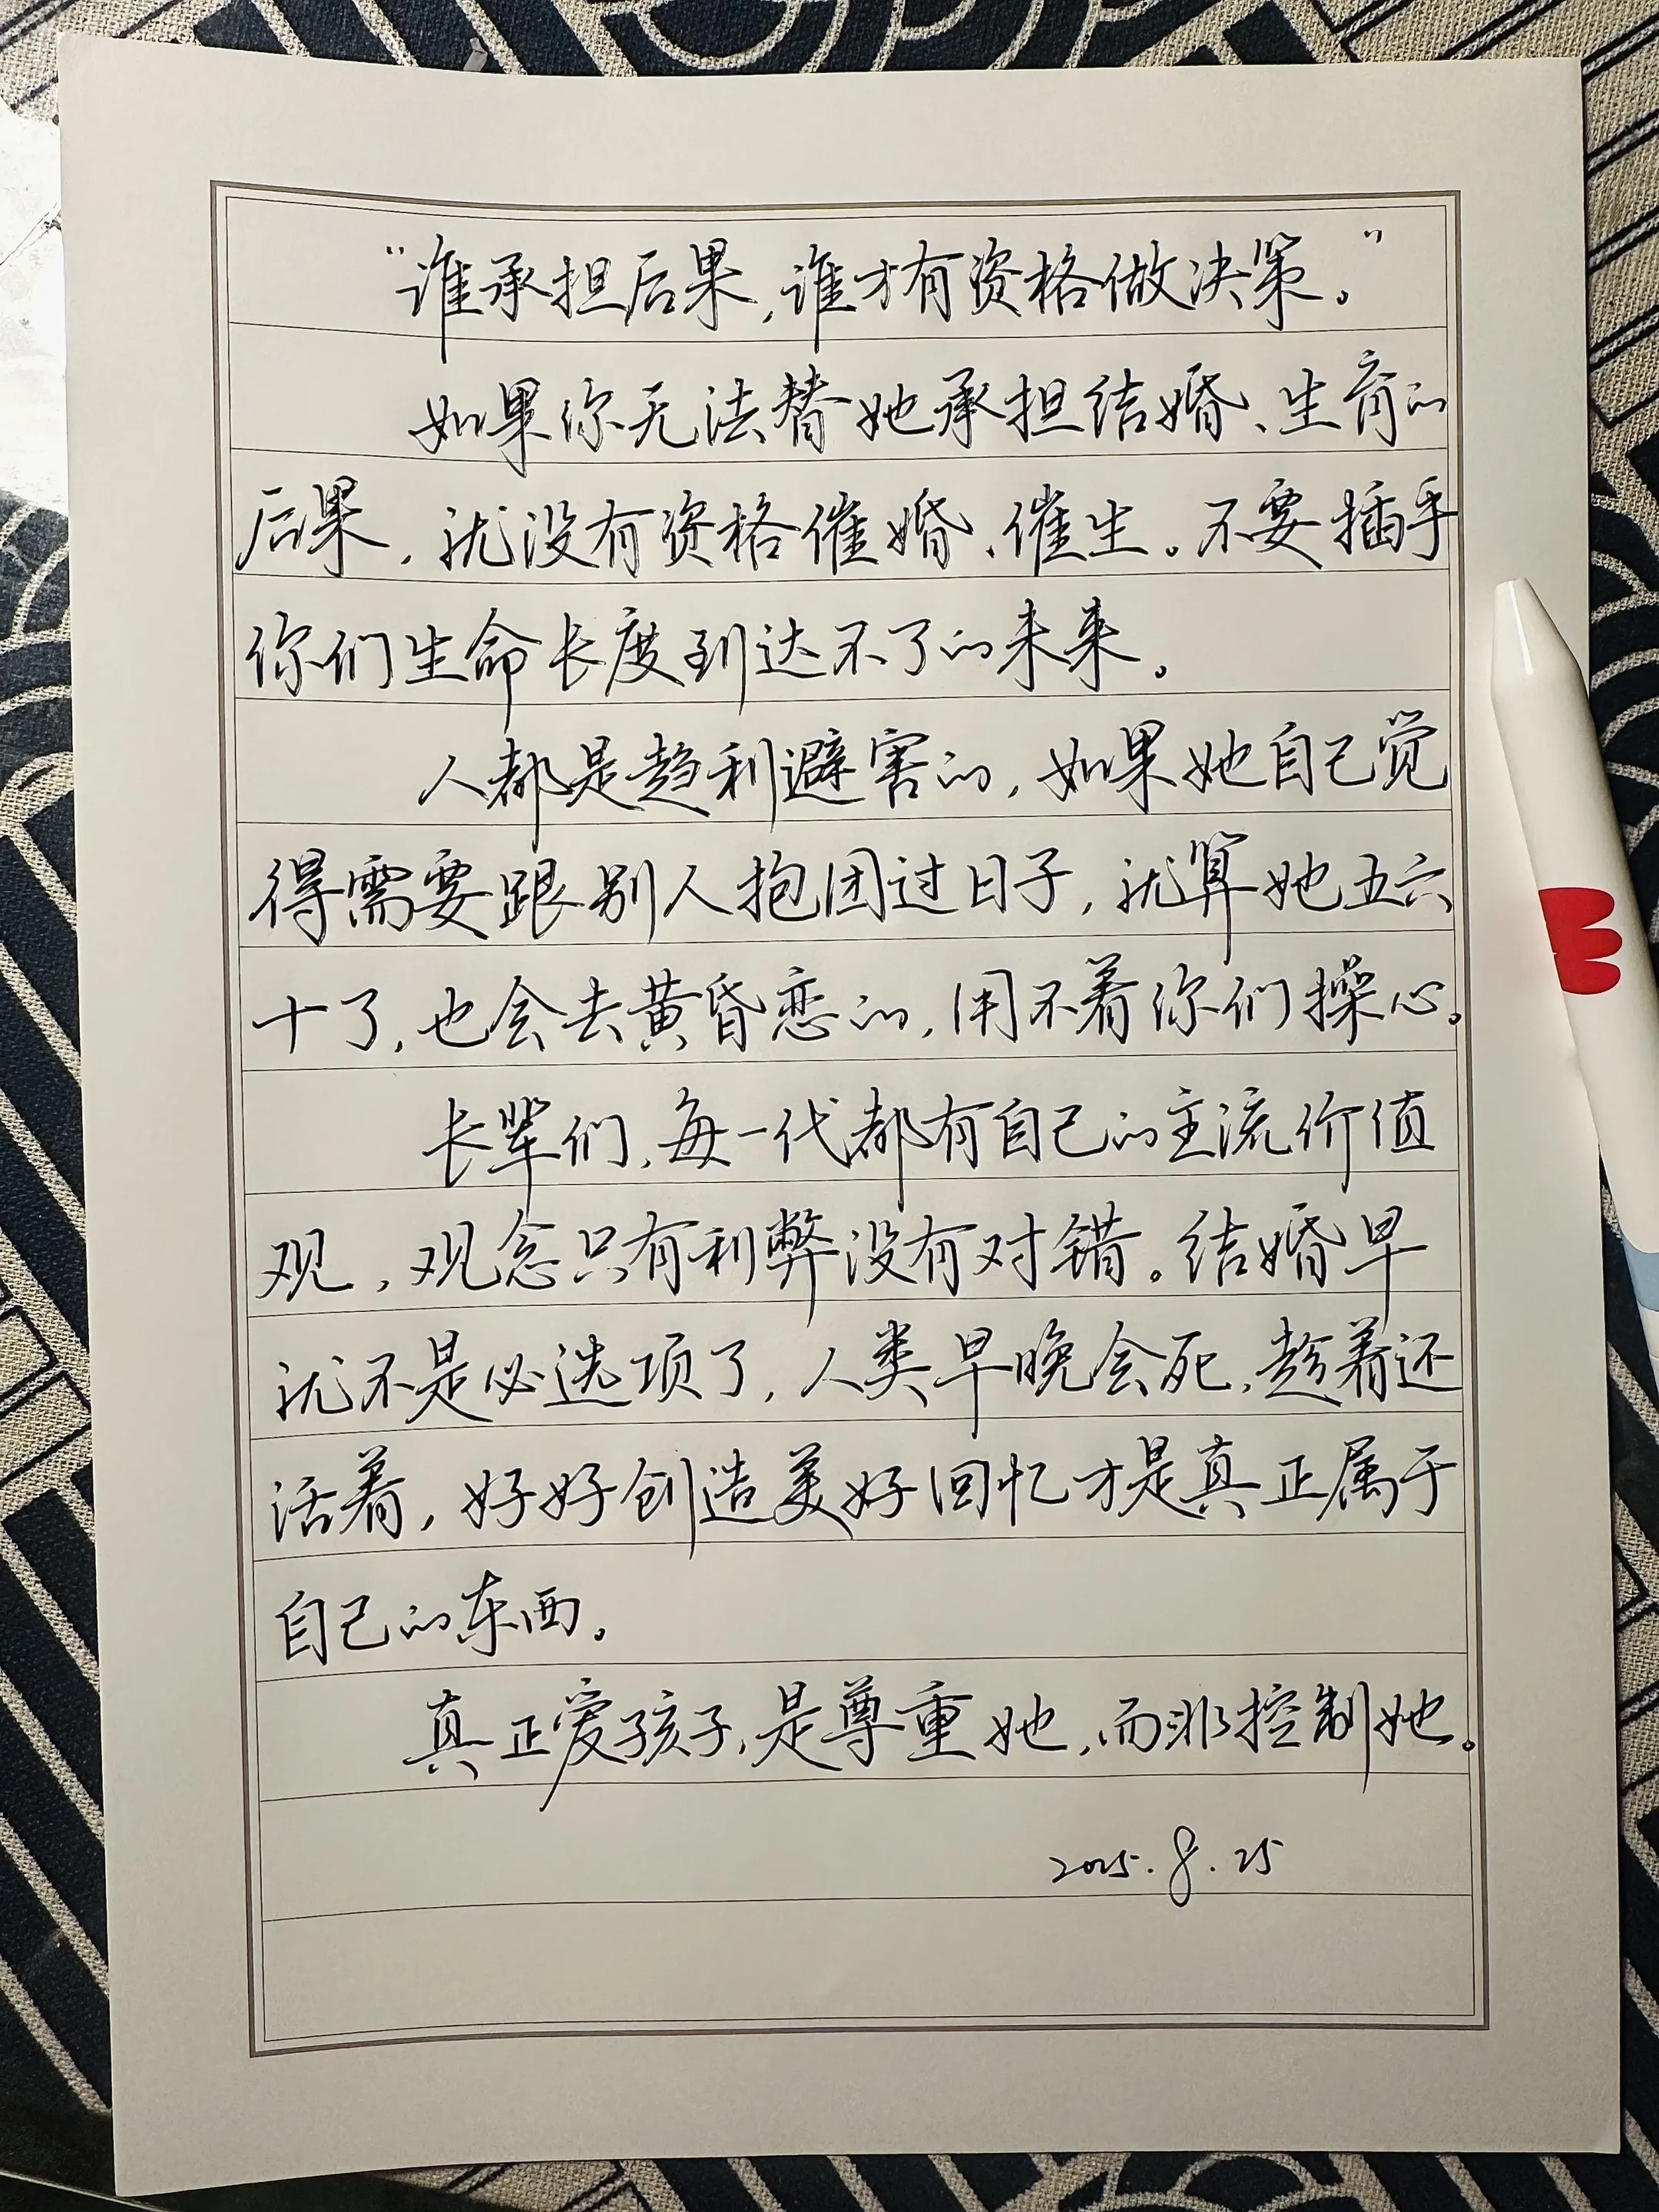 “谁承担后果,谁才有资格做决策。”
如果你无法替她承担结婚、生育的
后果,就没有资格催婚、催生。不要插手
你们生命长度到达不了的未来。
人都是趋利避害的,如果她自己觉
得需要跟别人抱团过日子,就算她五六
十了,也会去黄昏恋的,用不着你们操心。
长辈们,每一代都有自己的主流价值
观,观念只有利弊没有对错。结婚早
就不是必选项了,人类早晚会死,趁着还
活着,好好创造美好回忆才是真正属于
自己的东西。
真正爱孩子,是尊重她,而非控制她。
2025.8.25